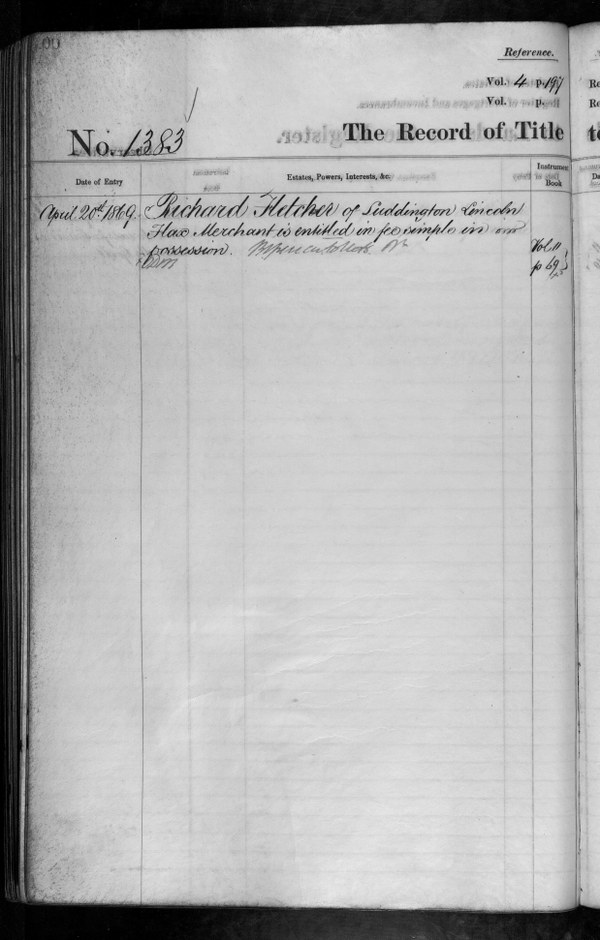 Reference.
Vol. 4 p. 197
Vol. p.
No. 1383
The Record of Title
Date of Entry
Estates, Powers, Interests, &c.
Instrument Book
April 20th 1869.
Richard Fletcher of Luddington Lincoln
Flax Merchant is entitled in fee simple in
possession.
Vol. 11
p 69